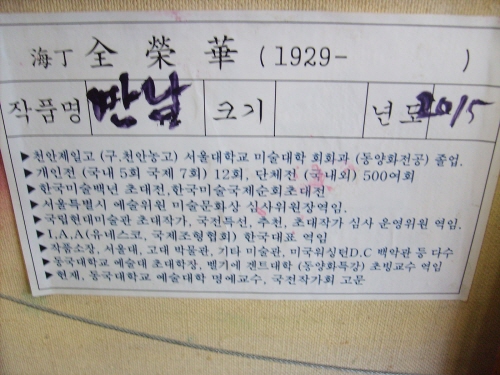 海丁 全榮華 (1929- )
작품명 만남 크기 년도 2015
▶천안제일고 (구.천안농고) 서울대학교 미술대학 회화과 (동양화전공) 졸업.
▶개인전 (국내 5회 국제 7회) 12회, 단체전 (국내외) 500여회
▶한국미술백년 초대전, 한국미술국제순회초대전
▶서울특별시 예술위원 미술문화상 심사위원장역임.
▶국립현대미술관 초대작가, 국전특선, 추천, 초대작가 심사 운영위원 역임.
▶I,A,A(유네스코, 국제조형협회) 한국대표 역임
▶작품소장, 서울대, 고대 박물관, 기타 미술관, 미국워싱턴D.C 백악관 등 다수
▶동국대학교 예술대 초대학장, 벨기에 겐트대학 (동양화특강) 초빙교수 역임
▶현재, 동국대학교 예술대학 명예교수, 국전작가회 고문